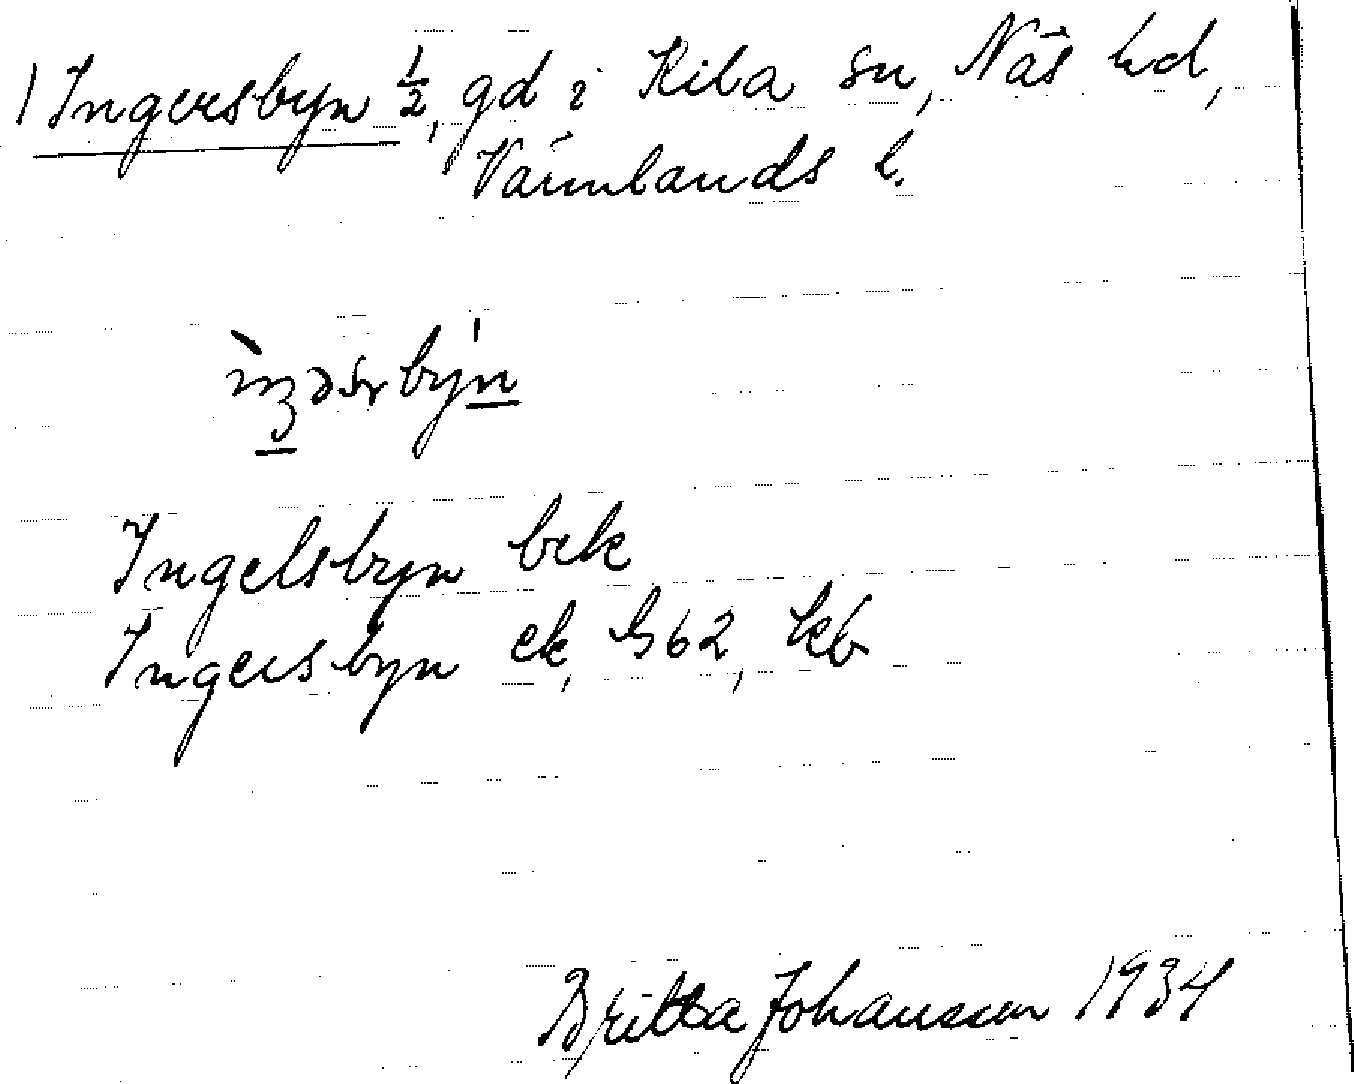 1 Ingersbyn ½, gd i Kila sn, Näs hd,
Värmlands l.
Ingelsbyn bek
Ingersbyn ek, h 62, kb
Britta Johansson 1934